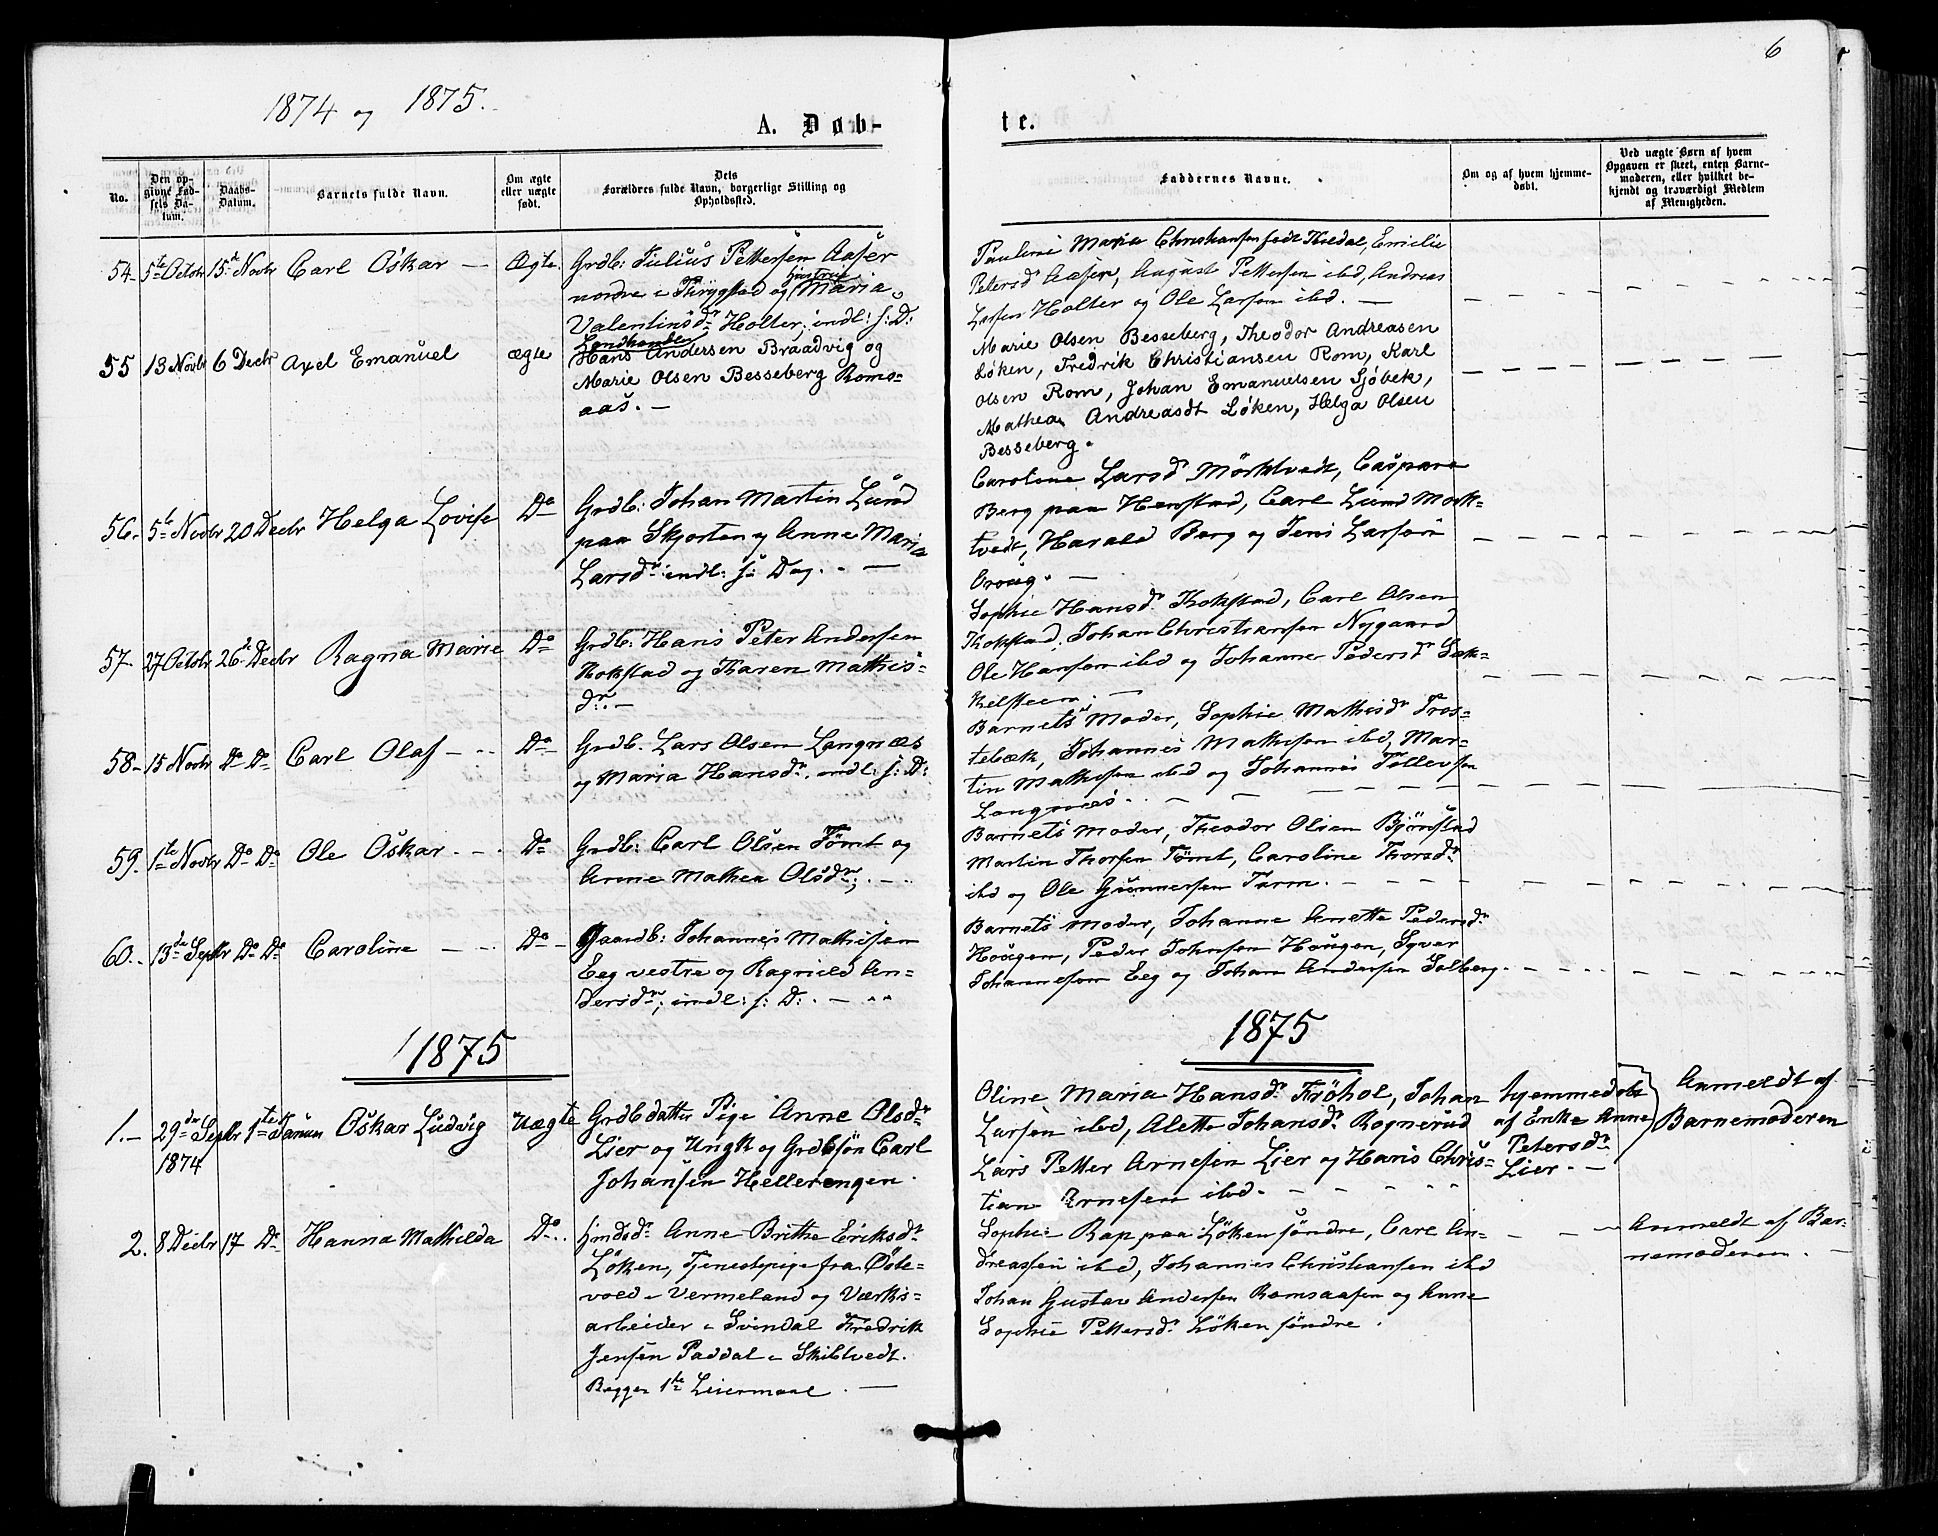 6
1874 og 1875.
A. Døb-
te.
No.
Den op-
givne Fød-
sels Da-
tum.
Daabs-
Datum.
Barnets fulde Navn.
Om ægte
eller uægte
født.
Dets
Forældres fulde Navn, borgerlige Stilling og
Opholdssted.
Faddernes Navne.
Om og af hvem hjemme-
døbt.
Ved uægte Børn af hvem
Opgaven er skeet, enten Barne-
moderen, eller hvilket be-
kjendt og troværdigt Medlem
af Menigheden.
54. 5te Octobr 15de Novbr Carl Oskar — Ægte.
Grdb: Julius Pettersen Aaser
nordre i Thrygstad og hustru Maria
Valentinsdr Holter; indl: s: D:
Pauline Maria Christiansen født Kredal, Emilie
Petersd Aasen, August Pettersen ibd, Andreas
Larsen Holter og Ole Larsen ibd. —
55 13 Novbr 6 Decbr Axel Emanuel ægte
Landhandler
Hans Andersen Braadvig og
Marie Olsen Besseberg Roms-
aas. —
Marie Olsen Besseberg, Theodor Andreasen
Løken, Fredrik Christiansen Rom, Karl
Olsen Rom, Johan Emanuelsen Sjøbek,
Mathea Andreasdt Løken, Helga Olsen
Besseberg.
56. 5te Novbr 20 Decbr Helga Lovise Do
Grdb: Johan Martin Lund
paa Skjorten og Anne Maria
Larsdr: indl: s: Dag. —
Caroline Larsdr Mörktvedt, Caspara
Berg paa Henstad, Carl Lund Mörk-
tvedt, Harald Berg og Jens Larsen
Oroug. —
57. 27 Octobr 26de Decbr Ragna Marie Do
Grdb: Hans Peter Andersen
Kokstad og Karen Mathis-
dr. —
Sophie Hansdr. Kokstad, Carl Olsen
Kokstad, Johan Christiansen Nygaard
Ole Hansen ibd og Johanne Pedersdr Sæk-
kelsteen. —
58. 15 Novbr Do Do Carl Olaf — Do
Grdb. Lars Olsen Langnæs
og Maria Hansdr. indl: s: D:
Barnets Moder, Sophie Mathisdr Tros-
tebæk, Johannes Mathisen ibd, Mar-
tin Mathisen ibd og Johannes Tollevsen
Langnæs.
59. 1ste Novbr Do Do Ole Oskar. — Do
Grdb: Carl Olsen Tömt og
Anne Mathea Olsdr;. —
Barnets Moder, Theodor Olsen Bjönstad
Martin Thorsen Tömt, Caroline Thorsdr.
ibd og Ole Gunnersen Torm.
60. 13de Septbr Do Do Caroline — Do
Gaardb: Johannes Mathisen
Eeg vestre og Ragnild An-
dersdr; indl: s: D:. —
Barnets Moder, Johanne Anette Pedersdr.
Hougen, Peder Johnsen Hougen, Syver
Johannesen Eeg og Johan Andersen Solberg.
1875
1875
1. 29de Septbr 1874 1ste Januar Oskar Ludvig Uægte
Grdbdatter Pige Anne Olsdr
Lier og Ungk og Grdbsön Carl
Johansen Hellerengen.
Oline Maria Hansdr. Fröhol, Johan
Larsen ibd, Alette Johansdr. Rognerud
Lars Petter Arnesen Lier og Hans Chris-
tian Arnesen ibd.
hjemmedøbt
af Enke Anne
Petersdr.
Lier. —
Anmeldt af
Barnemoderen
2. 8 Decbr 17 Do Hanna Mathilda Do.
Indsdr. Anne Brithe Eriksdr
Löken, Tjenestepige fra Öste-
vold i Vermeland og Værks-
arbeider i Svindal Fredrik
Jensen Paddal i Skibtvedt.
Begges 1ste Leiermaal. —
Sophie Rap paa Löken söndre, Carl An-
dreassen ibd, Johannes Christiansen ibd
Johan Gustav Andersen Romsaasen og Anne
Sophie Pettersdr Löken söndre.
Anmeldt af Bar-
nemoderen. —